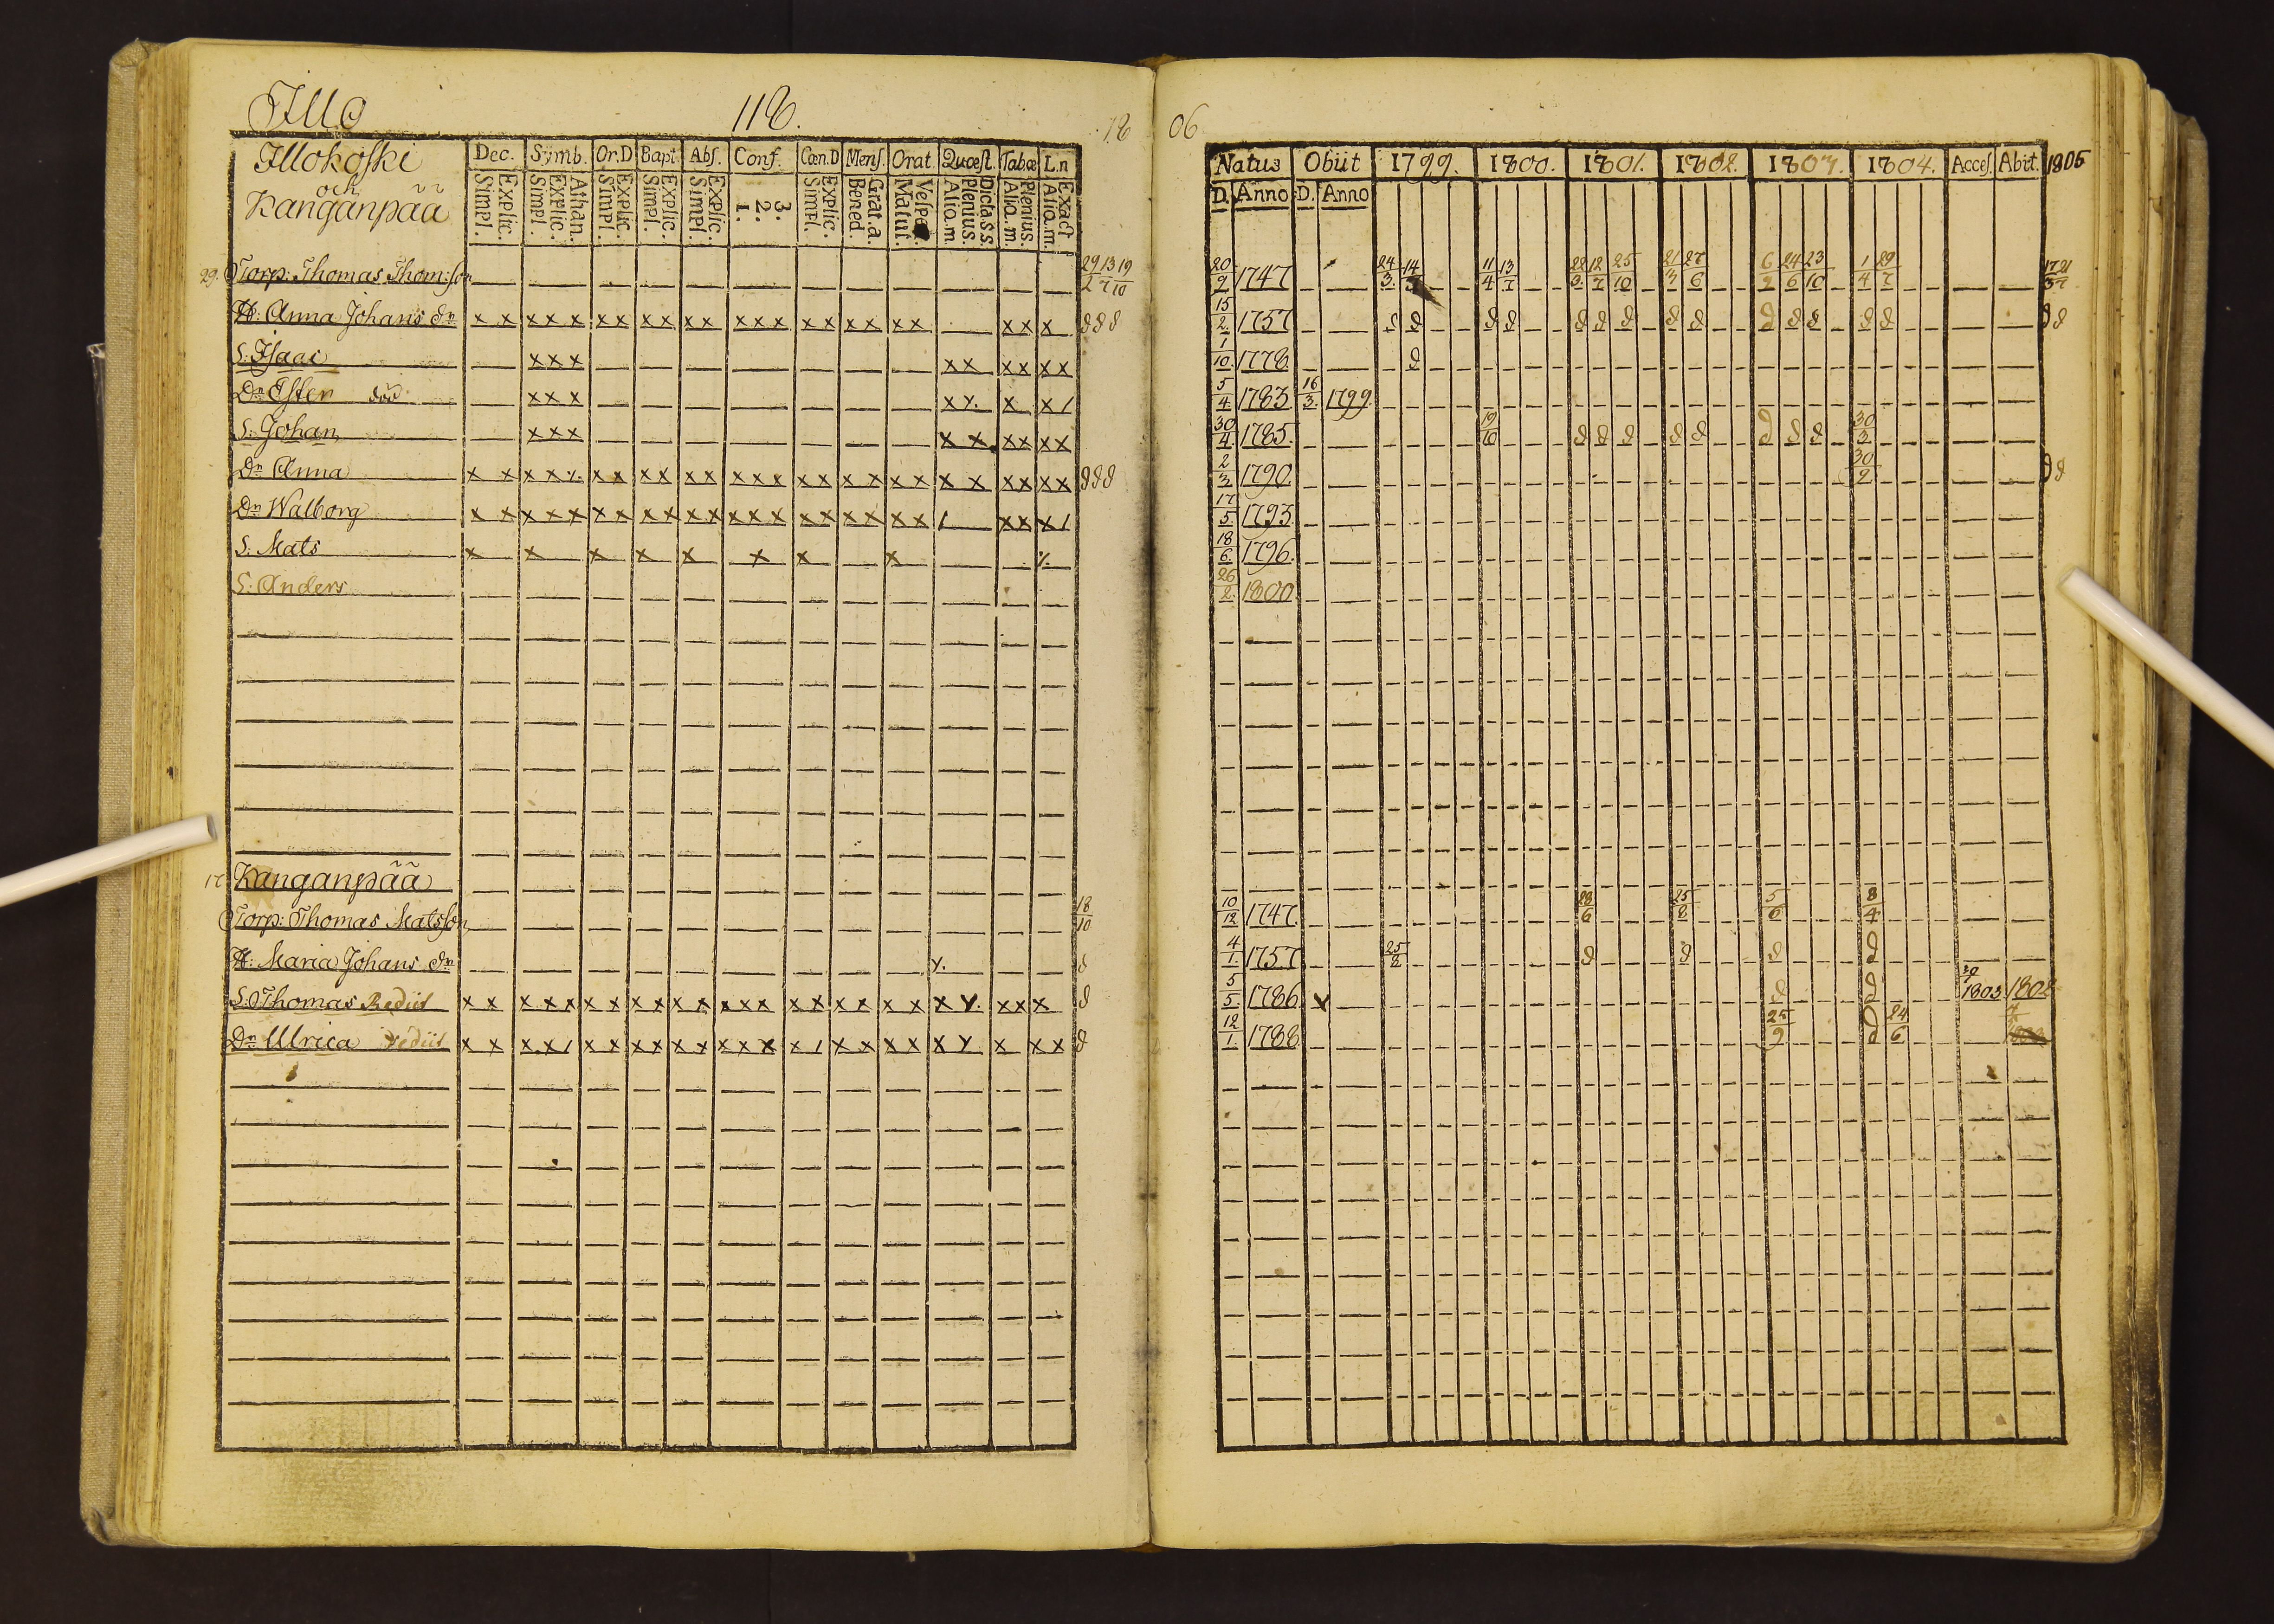 Illo 118.
18 06
Illokoski
och
Kanganpää
Dec. Symb. Or.D Bapt. Abs. Conf. Cœn.D Mens. Orat. Quœst. Tabœ L.n
Simpl. Explic. Simpl. Explic. Athan. Simpl. Explic. Simpl. Explic. Simpl. Explic. 1. 2. 3. Simpl. Explic. Bened. Grat. a. Matut. Alio.m. Plenius. Dicta.s.s. Alio.m. Plenius. Alio.m. Exact
Natus Obiit 1799. 1800. 1801. 1802. 1803. 1804. Acces. Abit. 1805
D. Anno D. Anno
29. Torp: Thomas Thom:son 29/2 13/7 19/10 20/9 1747 24/3 14/7 11/4 13/7 22/3 12/7 25/10 21/3 27/6 6/2 24/6 23/10 1/4 29/7 17/3 21/7
H: Anna Johans dr x x x x x x x x x x x x x x x x x x x x x x x 15/2 1757
S. Isaac x x x x x x x x x 1/10 1778
Dr Ester död x x x x y. x x / 5/4 1783 16/3 1799
S: Johan x x x x x x x x x 30/4 1785 19/10 30/3
Dr Anna x x x x x. x x x x x x x x x x x x x x x x x x x x x x 2/3 1790 30/9
Dr Walborg x x x x x x x x x x x x x x x x x x x x x / x x x / 17/5 1793
S. Mats x x x x x x x x 18/6 1796
S: Anders 26/2 1800
17 Kanganpää
Torp: Thomas Matsson 18/10 10/12 1747 28/6 25/8 5/6 8/4
H: Maria Johans dr y. 4/1 1757 25/8
S. Thomas Rediit x x x x x x x x x x x x x x x x x x x x x y. x x x 5/5 1786 x 1803 1802
Dr Ulrica rediit x x x x / x x x x x x x x x x / x x x x x y x x x 12/1 1788 25/9 24/6